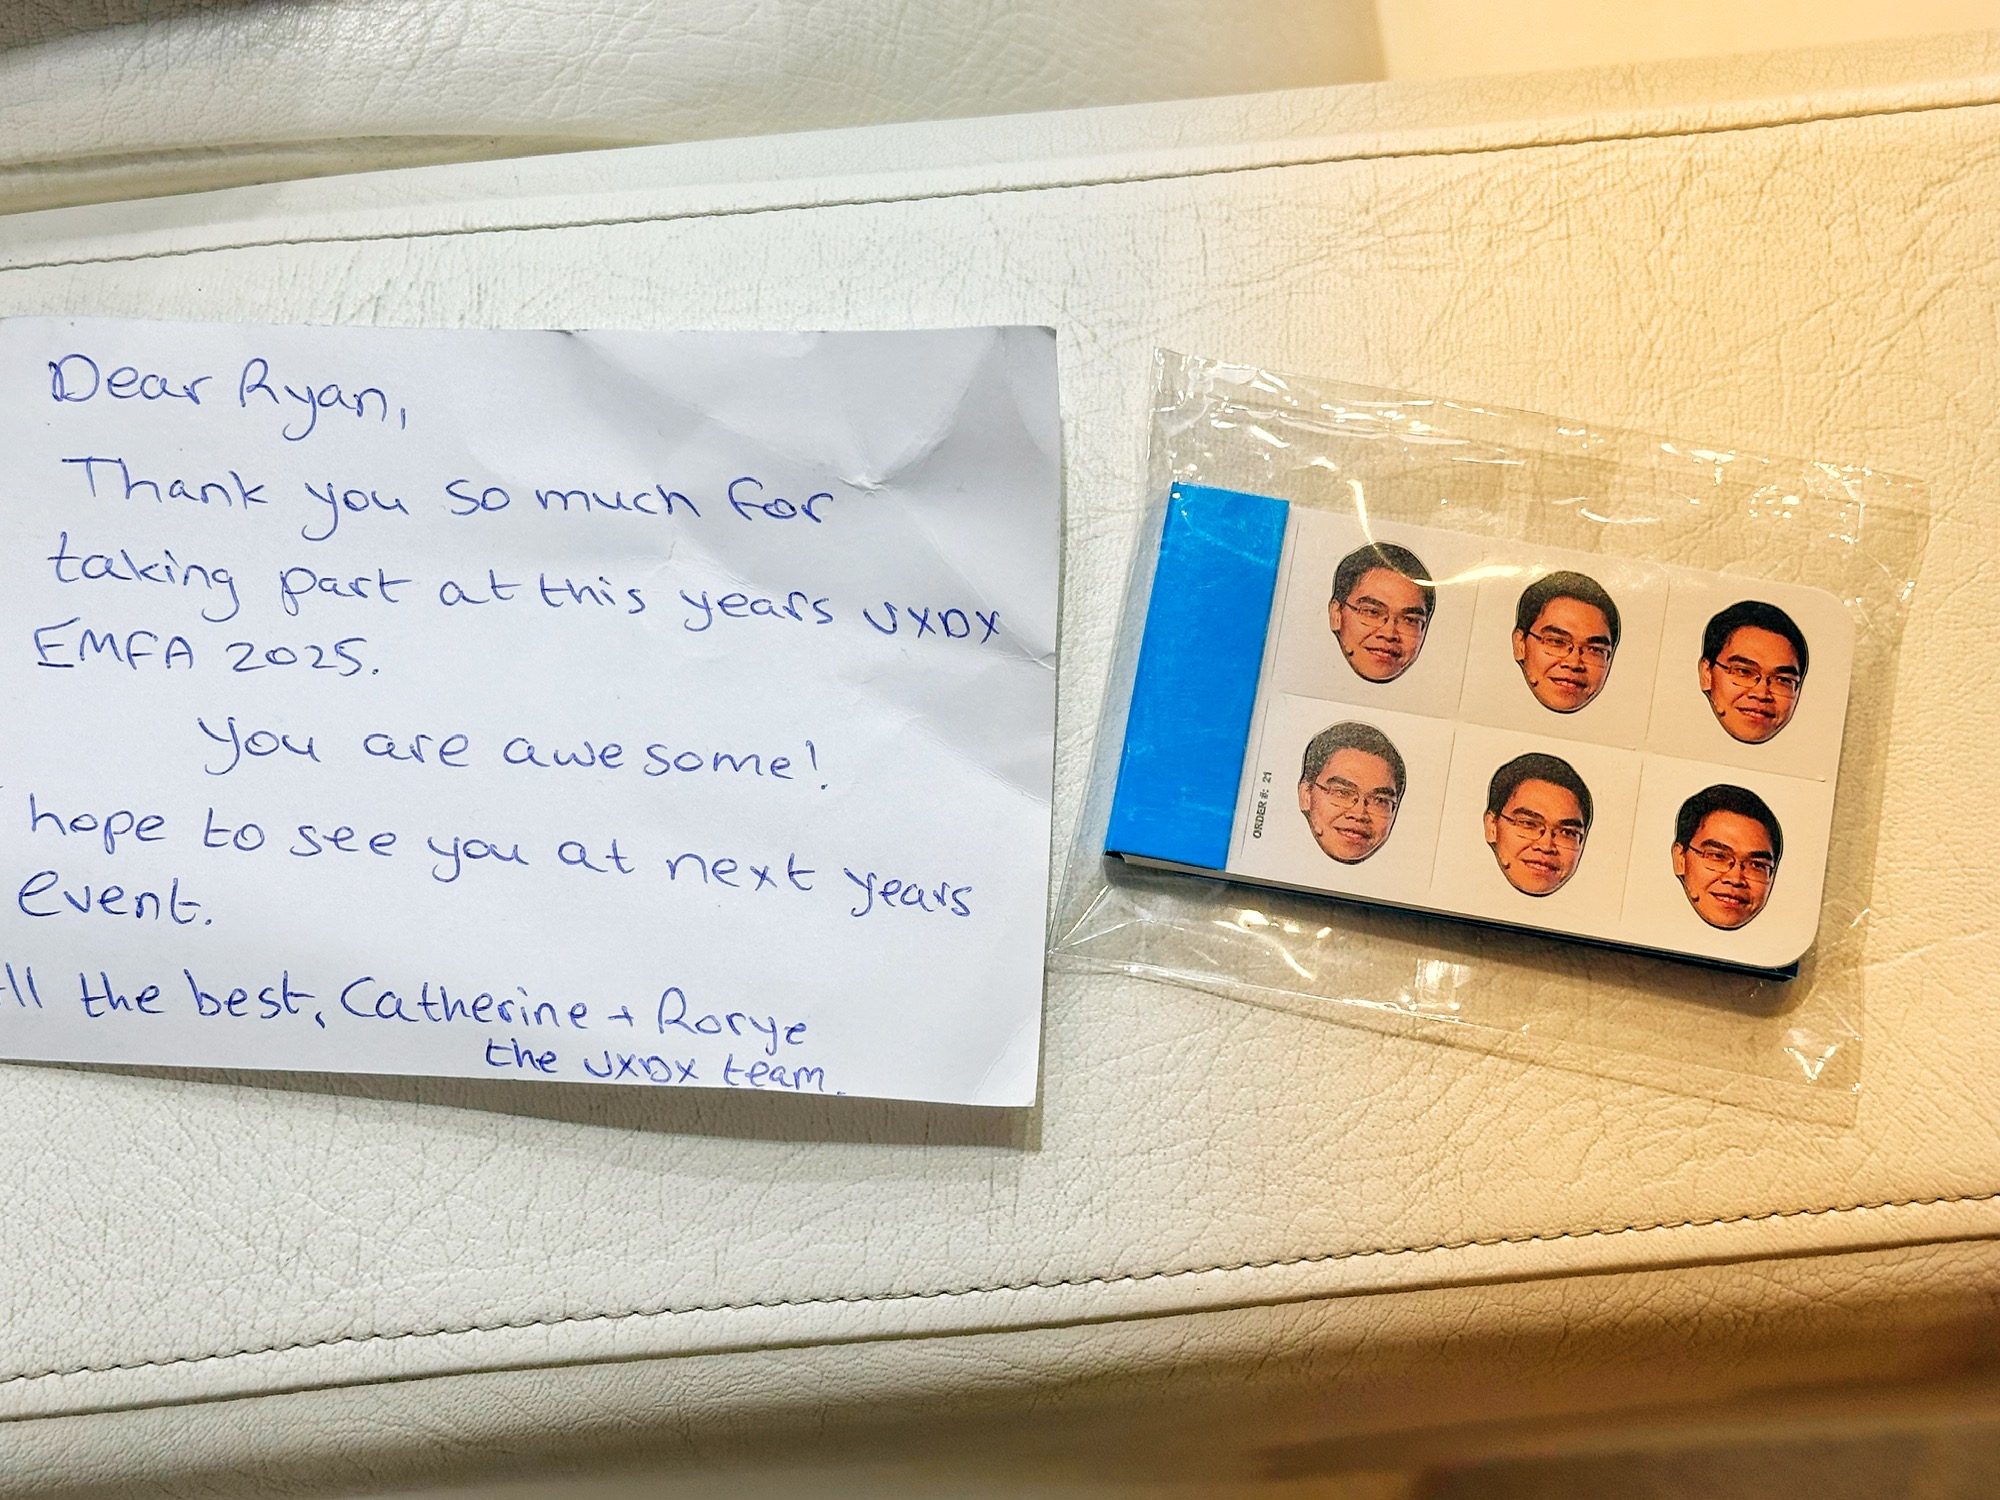 Dear Ryan,
Thank you so much for
taking part at this years UXDX
EMFA 2025.
You are awesome!
hope to see you at next years
event.
ll the best, Catherine + Rorye
the UXDX team.
ORDER #: 21